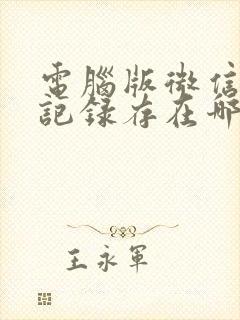 電腦版微信
記錄存在哪
王永軍